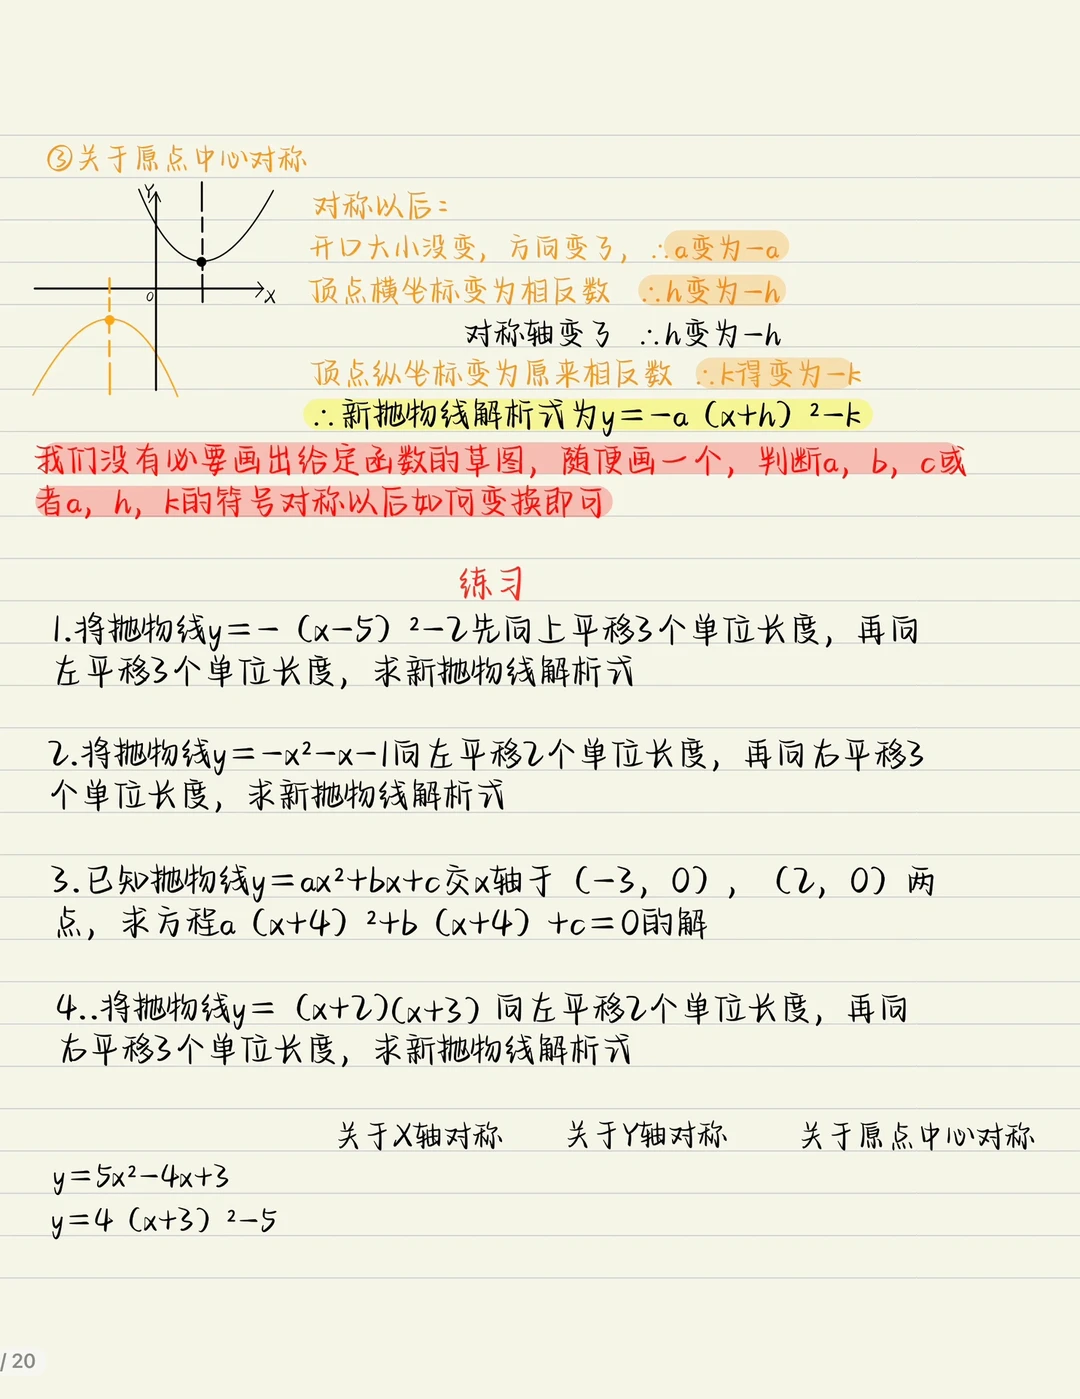 ③关于原点中心对称
Y
O
X
对称以后:
开口大小没变，方向变了，∴a变为-a
顶点横坐标变为相反数 ∴h变为-h
对称轴变了 ∴h变为-h
顶点纵坐标变为原来相反数 ∴k得变为-k
∴新抛物线解析式为y=-a（x+h）²-k
我们没有必要画出给定函数的草图，随便画一个，判断a，b，c或
者a，h，k的符号对称以后如何变换即可
练习
1.将抛物线y=-（x-5）²-2先向上平移3个单位长度，再向
左平移3个单位长度，求新抛物线解析式
2.将抛物线y=-x²-x-1向左平移2个单位长度，再向右平移3
个单位长度，求新抛物线解析式
3.已知抛物线y=ax²+bx+c交x轴于（-3，0），（2，0）两
点，求方程a（x+4）²+b（x+4）+c=0的解
4..将抛物线y=（x+2)(x+3）向左平移2个单位长度，再向
右平移3个单位长度，求新抛物线解析式
关于X轴对称 关于Y轴对称 关于原点中心对称
y=5x²-4x+3
y=4（x+3）²-5
/ 20